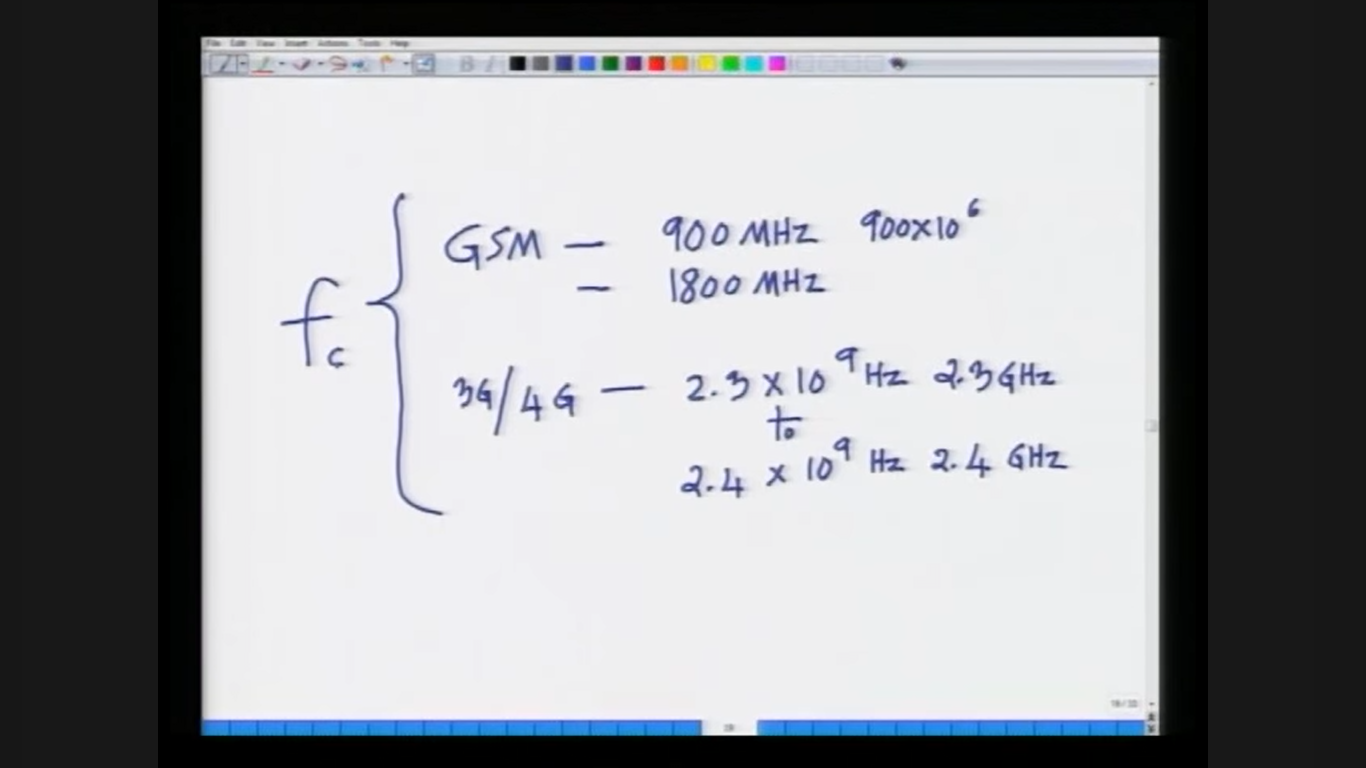 File Edit View Insert Actions Tools Help
GSM — 900 MHz 900x10⁶
— 1800 MHz
fc
3G/4G — 2.3 x 10⁹ Hz 2.3 GHz
to
2.4 x 10⁹ Hz 2.4 GHz